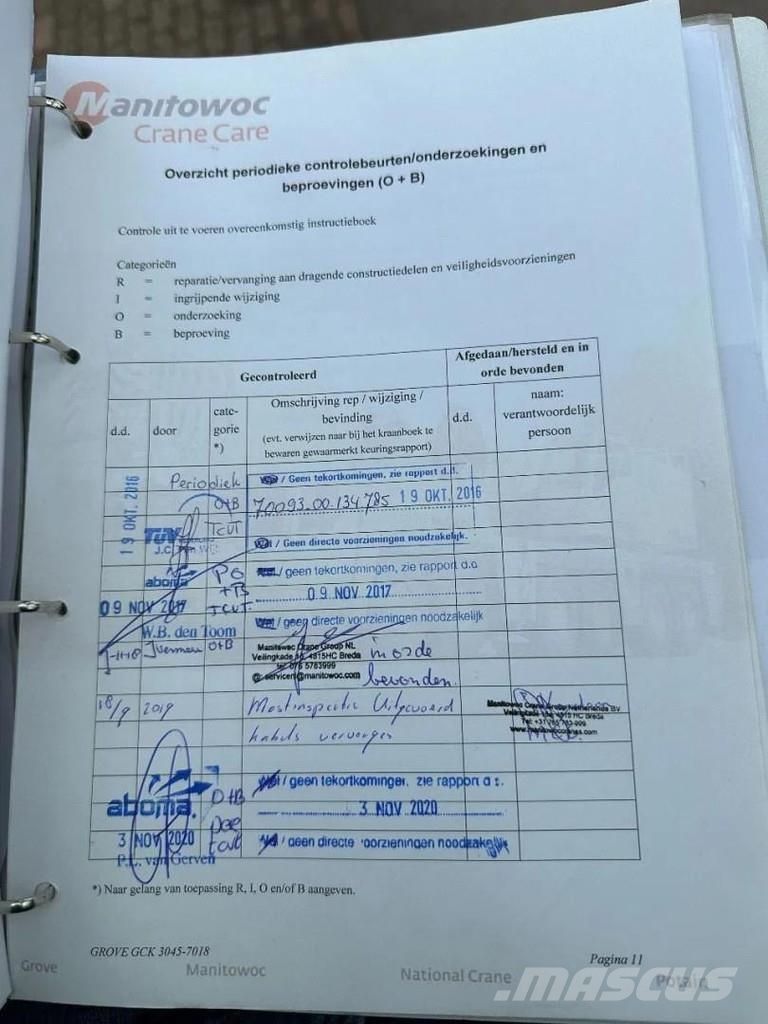 Manitowoc
Crane Care
Overzicht periodieke controlebeurten/onderzoekingen en
beproevingen (O + B)
Controle uit te voeren overeenkomstig instructieboek
Categorieën
R = reparatie/vervanging aan dragende constructiedelen en veiligheidsvoorzieningen
I = ingrijpende wijziging
O = onderzoeking
B = beproeving
Gecontroleerd
Afgedaan/hersteld en in
orde bevonden
d.d.
door
cate-
gorie
*)
Omschrijving rep / wijziging /
bevinding
(evt. verwijzen naar bij het kraanboek te
bewaren gewaarmerkt keuringsrapport)
d.d.
naam:
verantwoordelijk
persoon
19 OKT. 2016
Periodiek
O+B
TCVT
TÜV
J.C.
/ Geen tekortkomingen, zie rapport d.d.
70093.00.134.785 19 OKT. 2016
/ Geen directe voorzieningen noodzakelijk.
aboma
+B
TCVT
09 NOV 2017
W.B. den Toom
/ geen tekortkomingen, zie rapport d.d
09 NOV. 2017
/ geen directe voorzieningen noodzakelijk
O+B
Manitowoc Crane Group NL
Veilingkade 15, 4815HC Breda
tel: 076 5783999
@: servicenl@manitowoc.com
in orde
bevonden.
18/9 2019
Mastinspectie Uitgevoerd
kabels vervangen
Manitowoc Crane Group Netherlands BV
Breda
www.manitowoccranes.com
aboma
O+B
TCVT
3 NOV 2020
P.L. van Gerven
/ geen tekortkomingen, zie rapport d.d.
3 NOV 2020
/ geen directe voorzieningen noodzakelijk
*) Naar gelang van toepassing R, I, O en/of B aangeven.
GROVE GCK 3045-7018
Pagina 11
Grove
Manitowoc
National Crane
Potain
mascus